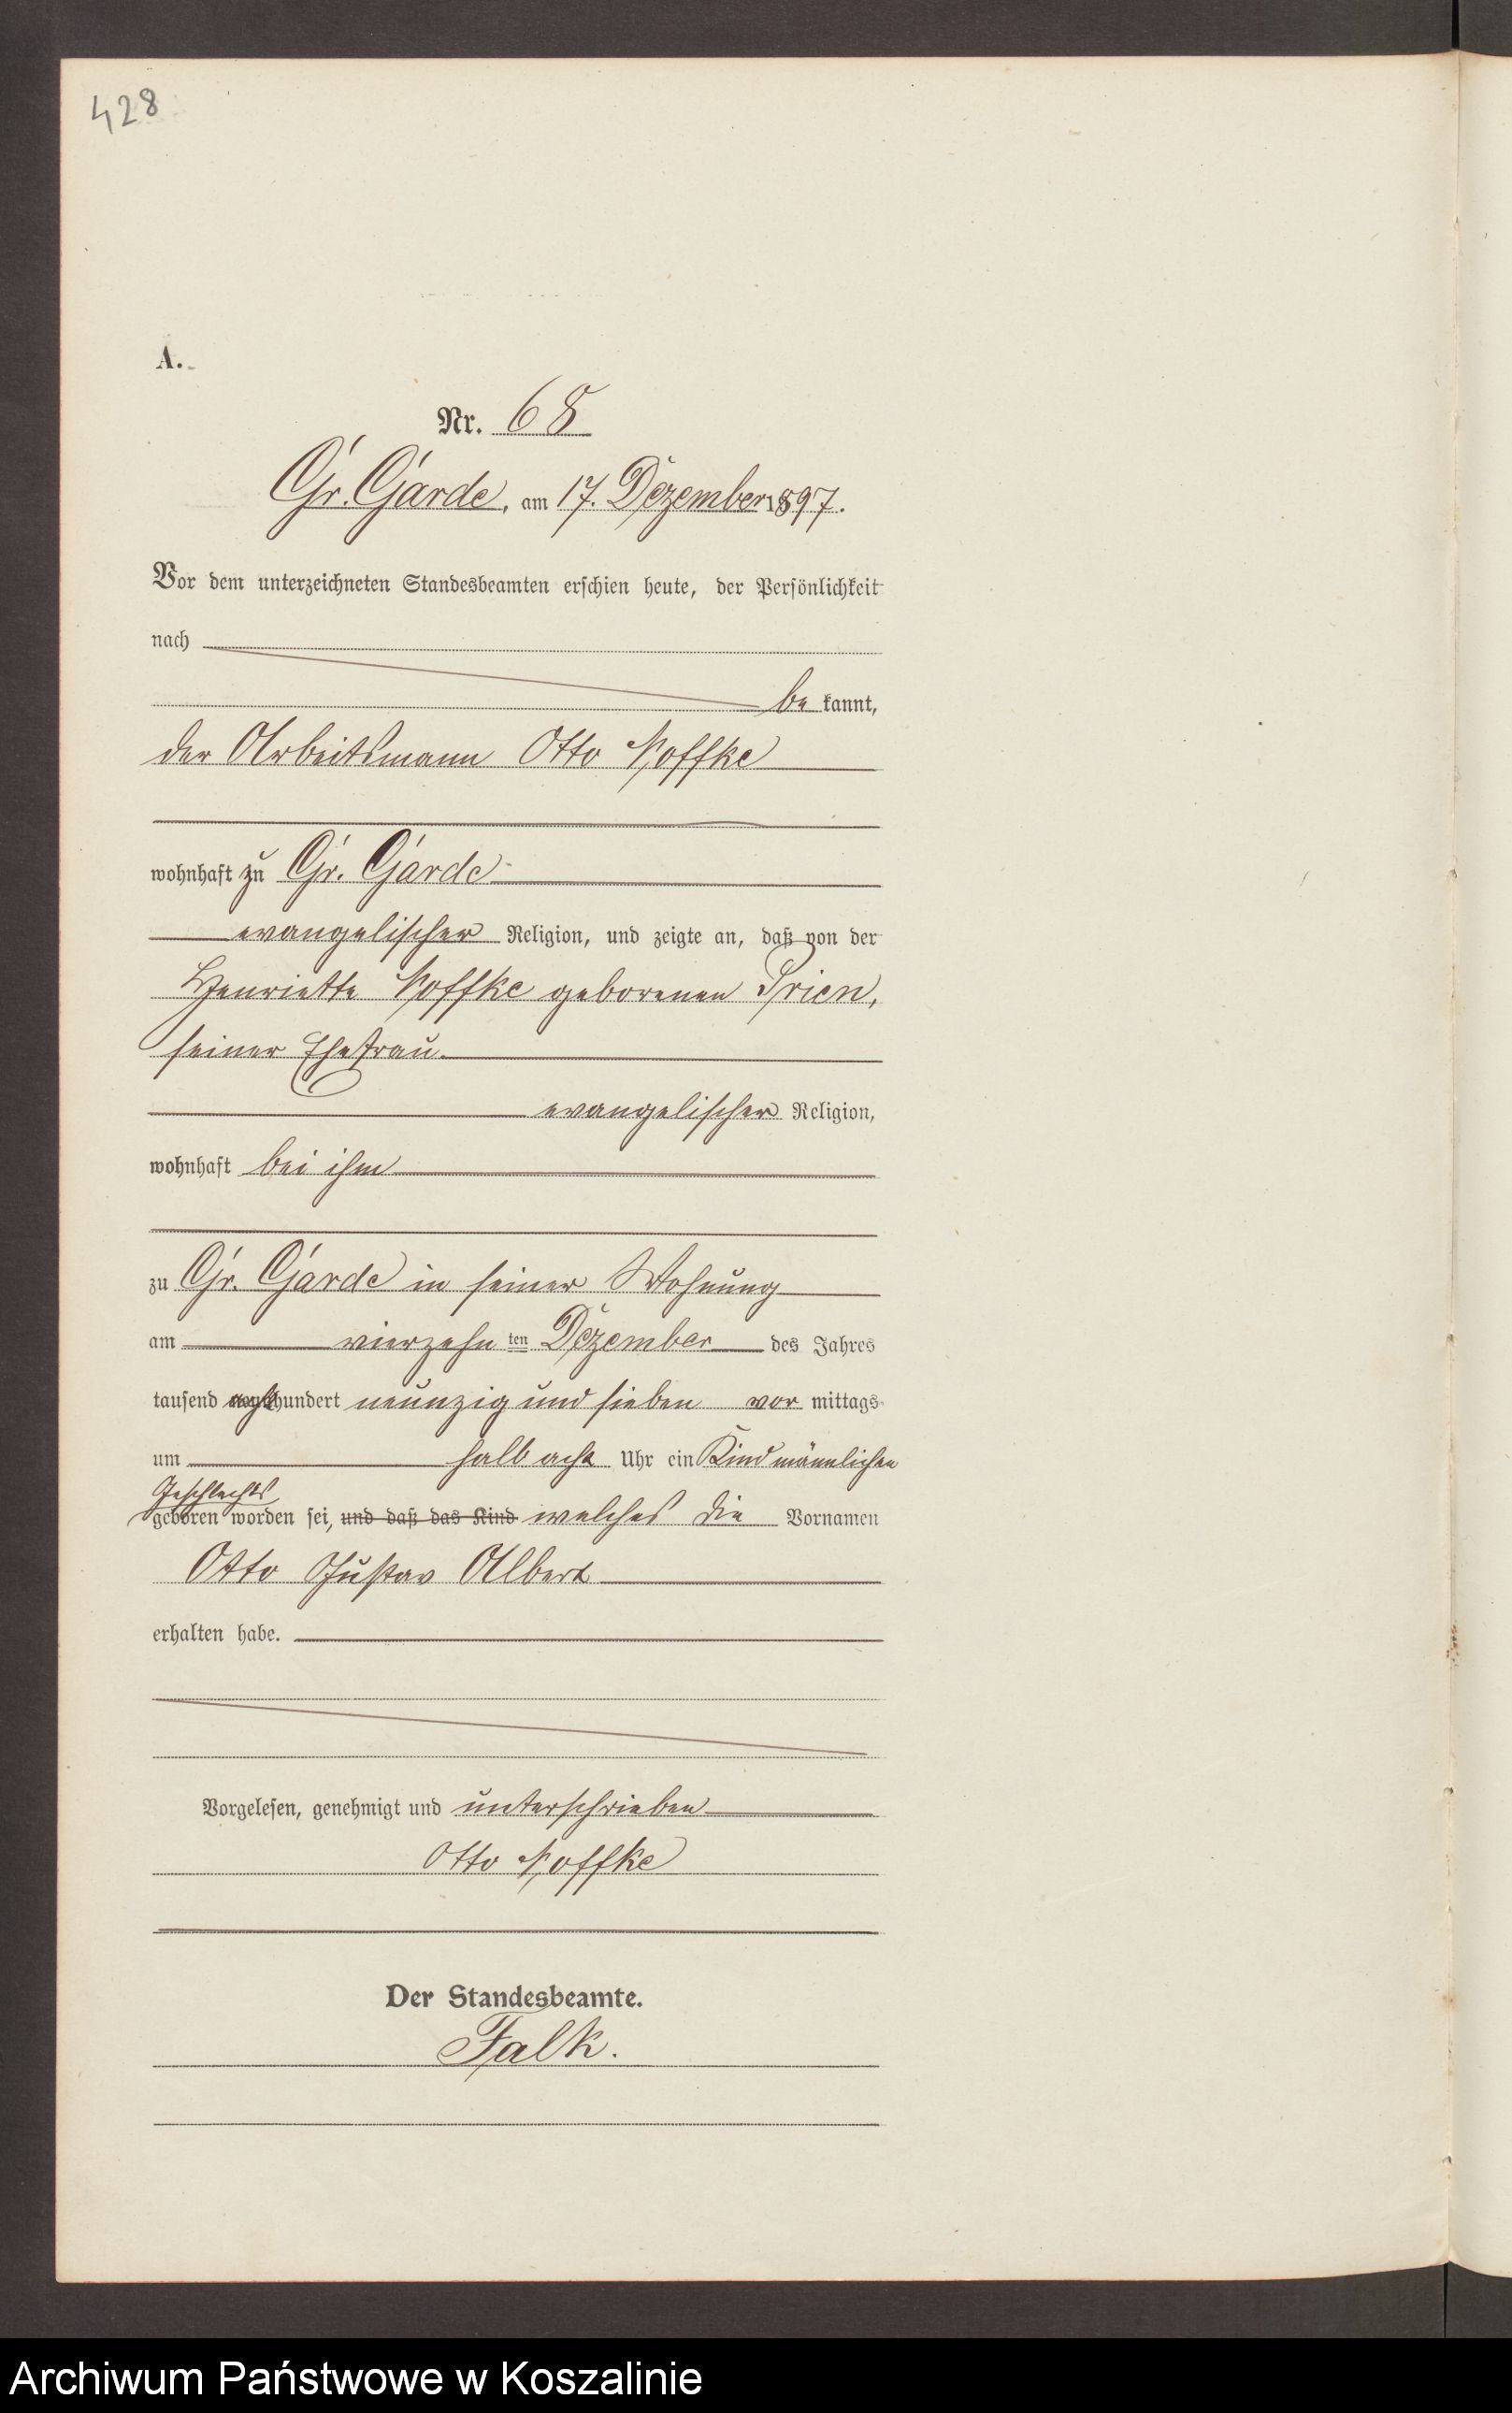 428
A.
Nr. 68
Gr. Garde, am 17. Dezember 1897.
Vor dem unterzeichneten Standesbeamten erschien heute, der Persönlichkeit
nach
be kannt,
der Arbeitsmann Otto Noffke
wohnhaft zu Gr. Garde
evangelischer Religion, und zeigte an, daß von der
Henriette Noffke geborenen Prien,
seiner Ehefrau
evangelischer Religion,
wohnhaft bei ihm
zu Gr. Garde in seiner Wohnung
am vierzehn ten Dezember des Jahres
tausend acht hundert neunzig und sieben vor mittags
um halb acht Uhr ein Kind männlichen
Geschlechts
geboren worden sei, und daß das Kind welches die Vornamen
Otto Gustav Albert
erhalten habe.
Vorgelesen, genehmigt und unterschrieben
Otto Noffke
Der Standesbeamte.
Falk.
Archiwum Państwowe w Koszalinie